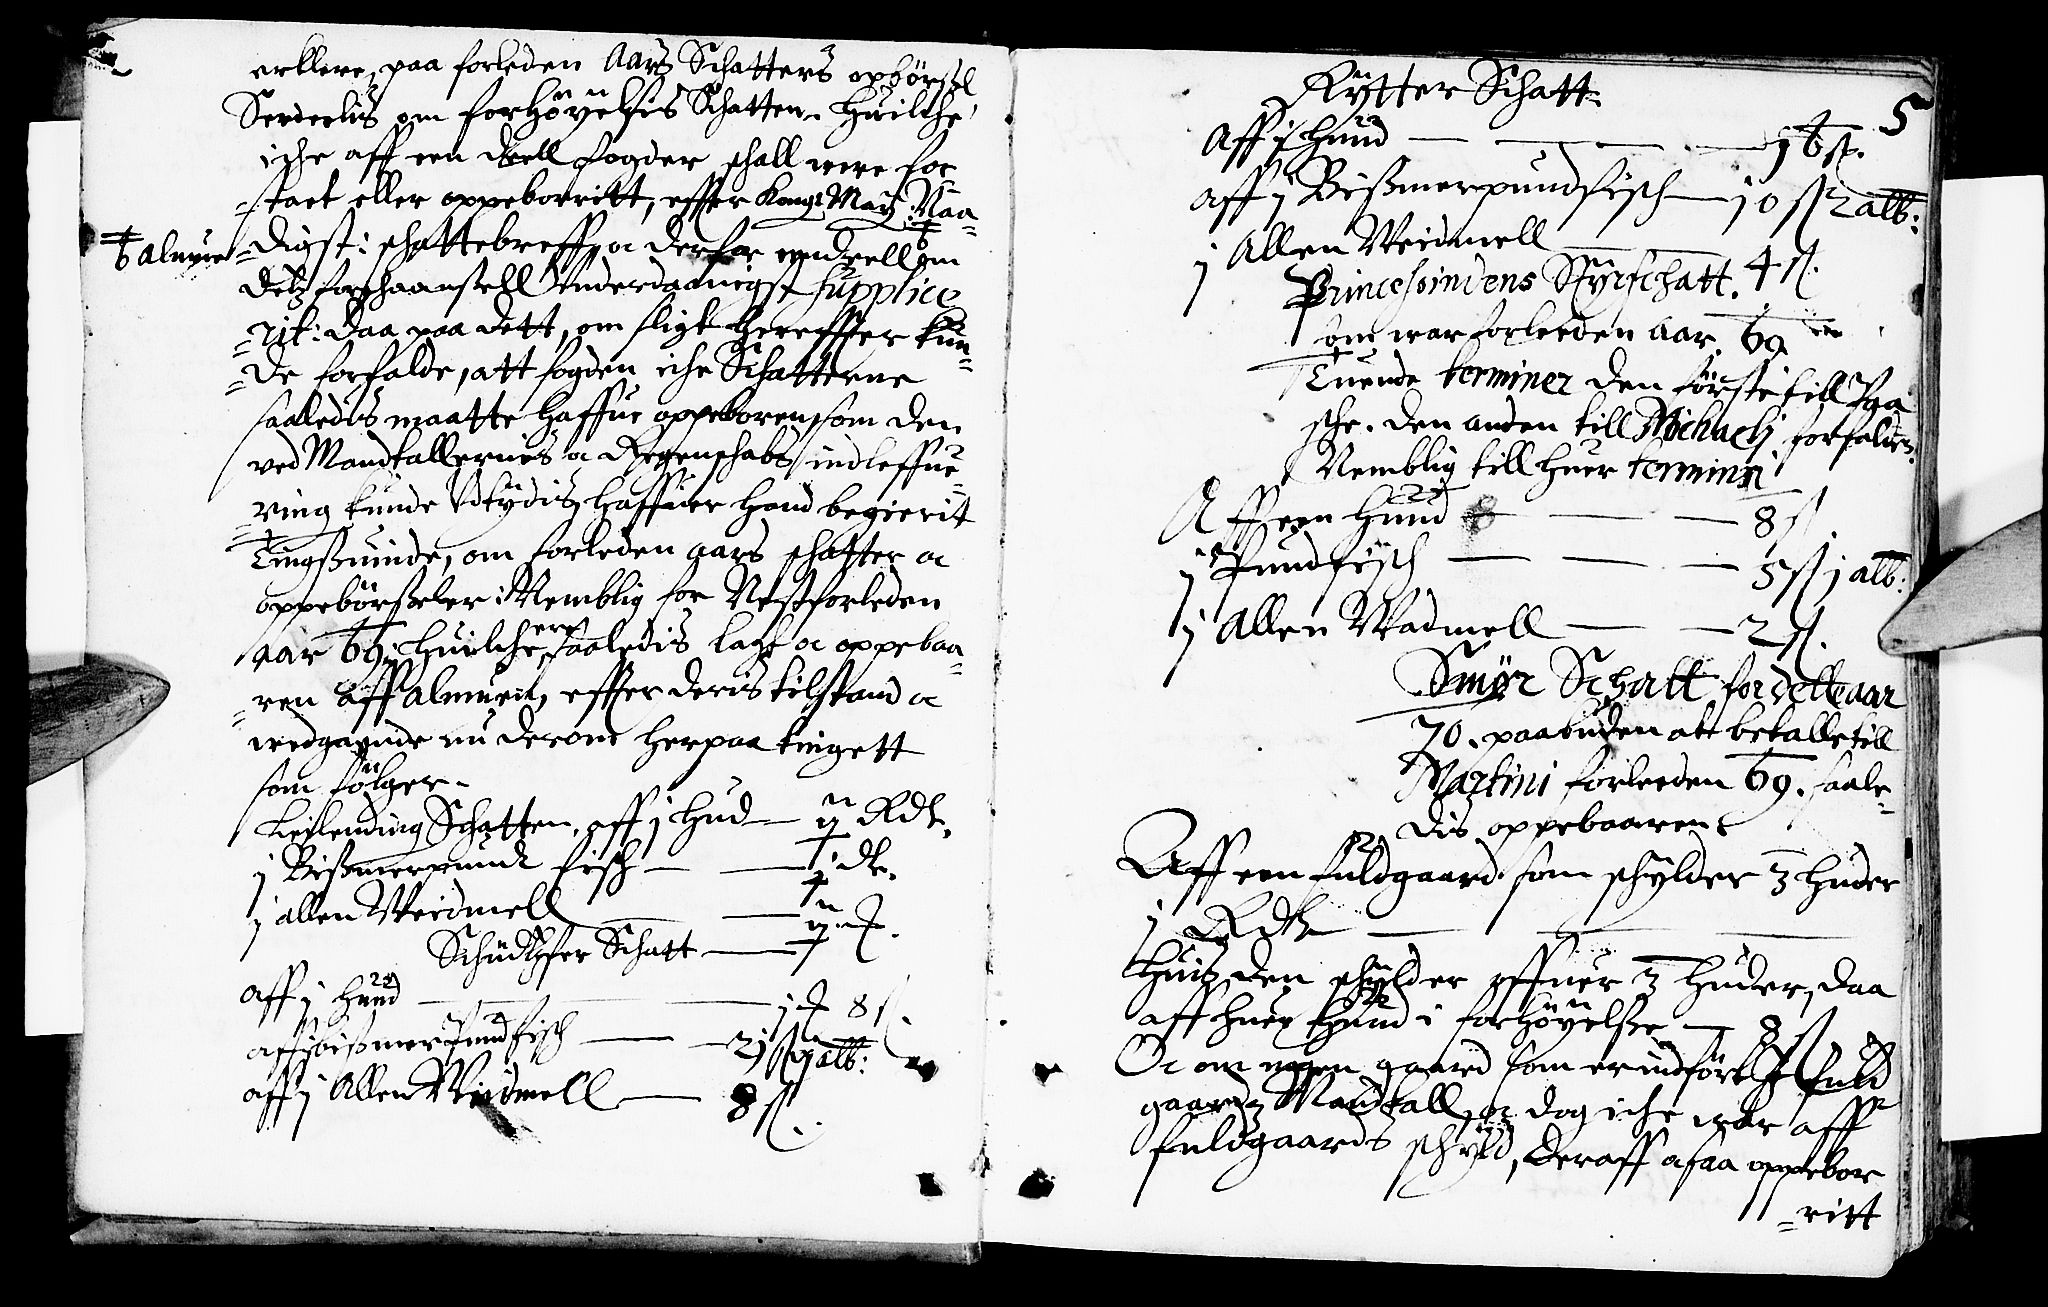 erklere, paa forleden Aars Schatters opbørsel
Serdeelis om forhøyelsis Schatten. Huilche
iche aff een deell fogder schall were for
staet eller oppeborritt, effter Kongl May Naa-
=digst: schattebreff, oc derfor eendeell om
‡ Almuen
detz forschaansell Underdaanigst supplice
=rit: daa paa dett, om sligt hereffter kun-
=de forfalde, att fogden iche Schatterne
saaledis maatte haffue oppeboren som den
ved Mandtallernis oc Regenschabs indleffue-
=ring kunde Udtydis, haffuer hand begierit
Tingsuinde, om forleden aars schatter oc
oppebørseler: Nemblig for Nestforleden
aar 69: Huilche ere saaledis lagt oc oppebaa-
=ren aff almuen, effter deris tilstand oc
vedgaaende nu derom her paa tingett
som følger.
Leylending Schatten, aff j Hud — ij Rdr.
j Bismerpund fisch — j dr.
j allen Weidmell —
Schudtzfer Schatt —
aff j hud — j 8 s.
aff j bismerpund fisch — 21 s j alb:
aff j Allen Weidmell — 8 s.
5
Rytter Schatt
Aff j hud —
aff j Bismerpund fisch — 10 s 2 alb:
j Allen Weidmell — 4 s.
Princessindens Styr schatt.
som war forleeden aar 69
Tuende terminer den første till Paa
sche. den anden till Michaelj forfalden.
Nemblig till huer termin
Aff een hud — 8 s
j Pund fisch — 5 s j alb:
j Allen Wadmell — 2 s.
Smør Schatt for dette aar
70. paabuden at betalle till
Martini forleeden 69. saale-
dis oppebaaren
Aff een fuldgaard som schylder 3 huder
j Rdr —
Huis den schylder offuer 3 huder, daa
aff huer hud i forhøyelse — 8 s
Oc om nogen gaard som er indført for fuld
gaard i Mandtall, oc dog iche war aff
fuldgaards schyld, deraff ochsaa oppebor
=ritt